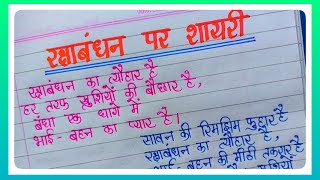 रक्षाबंधन पर शायरी
रक्षाबंधन का त्यौहार है
हर तरफ खुशियों की बौछार है,
बंधा एक धागे में
भाई - बहन का प्यार है।
सावन की रिमझिम फुहार है
रक्षाबंधन का त्यौहार है,
भाई - बहन की मीठी तकरार है